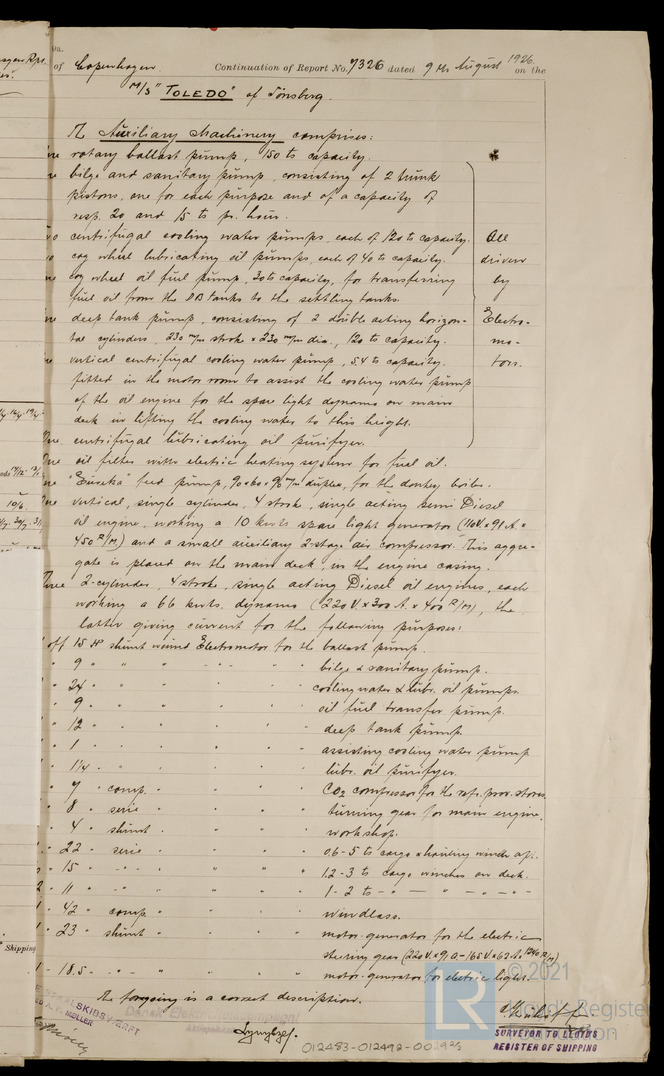 of Copenhagen Continuation of Report No. 7326 dated 9th August 1926. on the
M/S "TOLEDO" of Tönsberg.
Auxiliary Machinery comprises:
rotary ballast pump, 150 ts capacity.
bilge and sanitary pump, consisting of 2 trunk
pistons, one for each purpose and of a capacity of
resp. 20 and 15 ts pr. hour.
centrifugal cooling water pumps, each of 120 ts capacity.
cog wheel lubricating oil pumps, each of 40 ts capacity.
cog wheel oil fuel pump, 30 ts capacity, for transferring
fuel oil from the DB tanks to the settling tanks.
deep tank pump, consisting of 2 double acting horizon-
tal cylinders, 230 m/m stroke × 230 m/m dia., 120 ts capacity.
vertical centrifugal cooling water pump, 54 ts capacity.
fitted in the motor room to assist the cooling water pump
of the oil engine for the spare light dynamo on main
deck in lifting the cooling water to this height.
One centrifugal lubricating oil purifyer.
All
driven
by
Electro-
mo-
tors.
One oil filter with electric heating system for fuel oil.
"Eureka" feed pump, duplex, for the donkey boiler.
One vertical, single cylinder, 4 stroke, single acting semi Diesel
oil engine, working a 10 kwts spare light generator (110V. × 91 A ×
450 R/M) and a small auxiliary 2-stage air compressor. This aggre-
gate is placed on the main deck, in the engine casing.
Three 2-cylinder, 4 stroke, single acting Diesel oil engines, each
working a 66 kwts. dynamo (220 V. × 300 A. × 400 R/M), the
latter giving current for the following purposes:
off 15 HP shunt wound Electromotor for the ballast pump.
" 9 " " " " " " bilge & sanitary pump.
" 24 " " " " " " cooling water & lubr. oil pumps.
" 9 " " " " " oil fuel transfer pump.
" 12 " " " " " deep tank pump.
" 1 " " " " " assisting cooling water pump
" 1¼ " " " " lubr. oil purifyer.
" 7 " comp. " " " CO2 compressor for the refr. prov. stores.
" 8 " serie " " " turning gear for main engine.
" 4 " shunt " " " workshop.
" 22 " serie " " " 06-5 ts cargo & hauling winch aft.
" 15 " " " " " 1.2-3 ts cargo winches on deck.
2 " 11 " " " " " 1-2 ts - " - " - " -
" 42 " comp " " " windlass.
" 23 " shunt " " " motor generator for the electric
steering gear (220 V. × 91 A - 165 V × 62 A.
1 - 18.5 " " " " motor-generator for electric light.
The foregoing is a correct description.
© 2021
LR
Register
SURVEYOR TO LLOYD'S
REGISTER OF SHIPPING
Shipping
MØLLER
012483-012492-0029 2/5